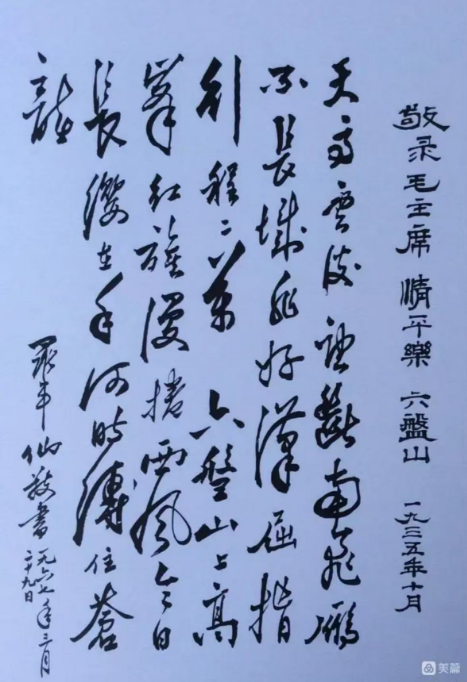 敬录毛主席 清平樂 六盤山 一九三五年十月
天高雲淡望斷南飛雁
不到長城非好漢屈指
行程二萬 六盤山上高
峯紅旗漫捲西風今日
長纓在手何時縛住蒼
龍
仙敬書
一九六七年三月
二十九日
美篇